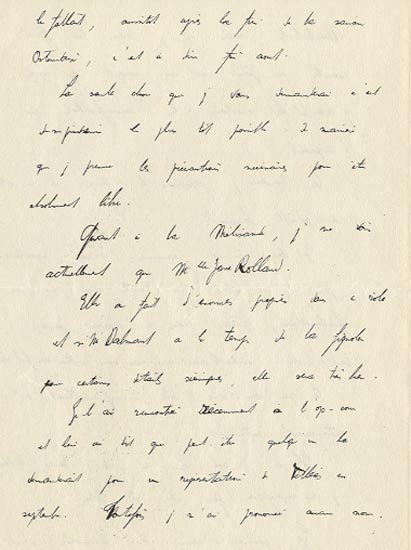 le fallait, aussitôt après la fin de la saison
Ostendaise, c'est à dire fin août.
La seule chose que je vous demanderai c'est
de le plus tôt possible de manière
que je prenne les précautions nécessaires pour être
absolument libre.
Quant à la Mélisande, je ne vois
actuellement que Mlle Jane Rolland.
Elle a fait d'énormes progrès dans ce rôle
et si Mr Dalmant a le temps de la fignoler
pour certains détails scéniques, elle sera très bien.
Je l'ai rencontrée récemment à l'op-com
et lui ai dit que peut-être quelqu'un la
demanderait pour une représentation de Pelléas en
septembre. Toutefois je n'ai prononcé aucun nom.